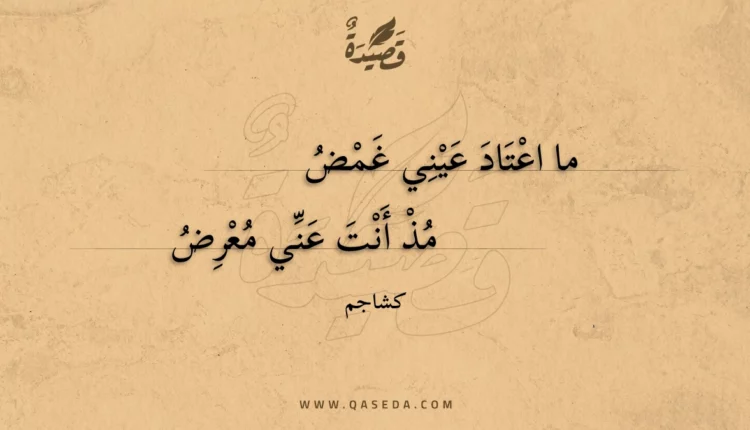 قَصِيْدَةٌ
ما اعْتَادَ عَيْنِي غَمْضُ
مُذْ أَنْتَ عَنِّي مُعْرِضُ
كشاجم
WWW.QASEDA.COM